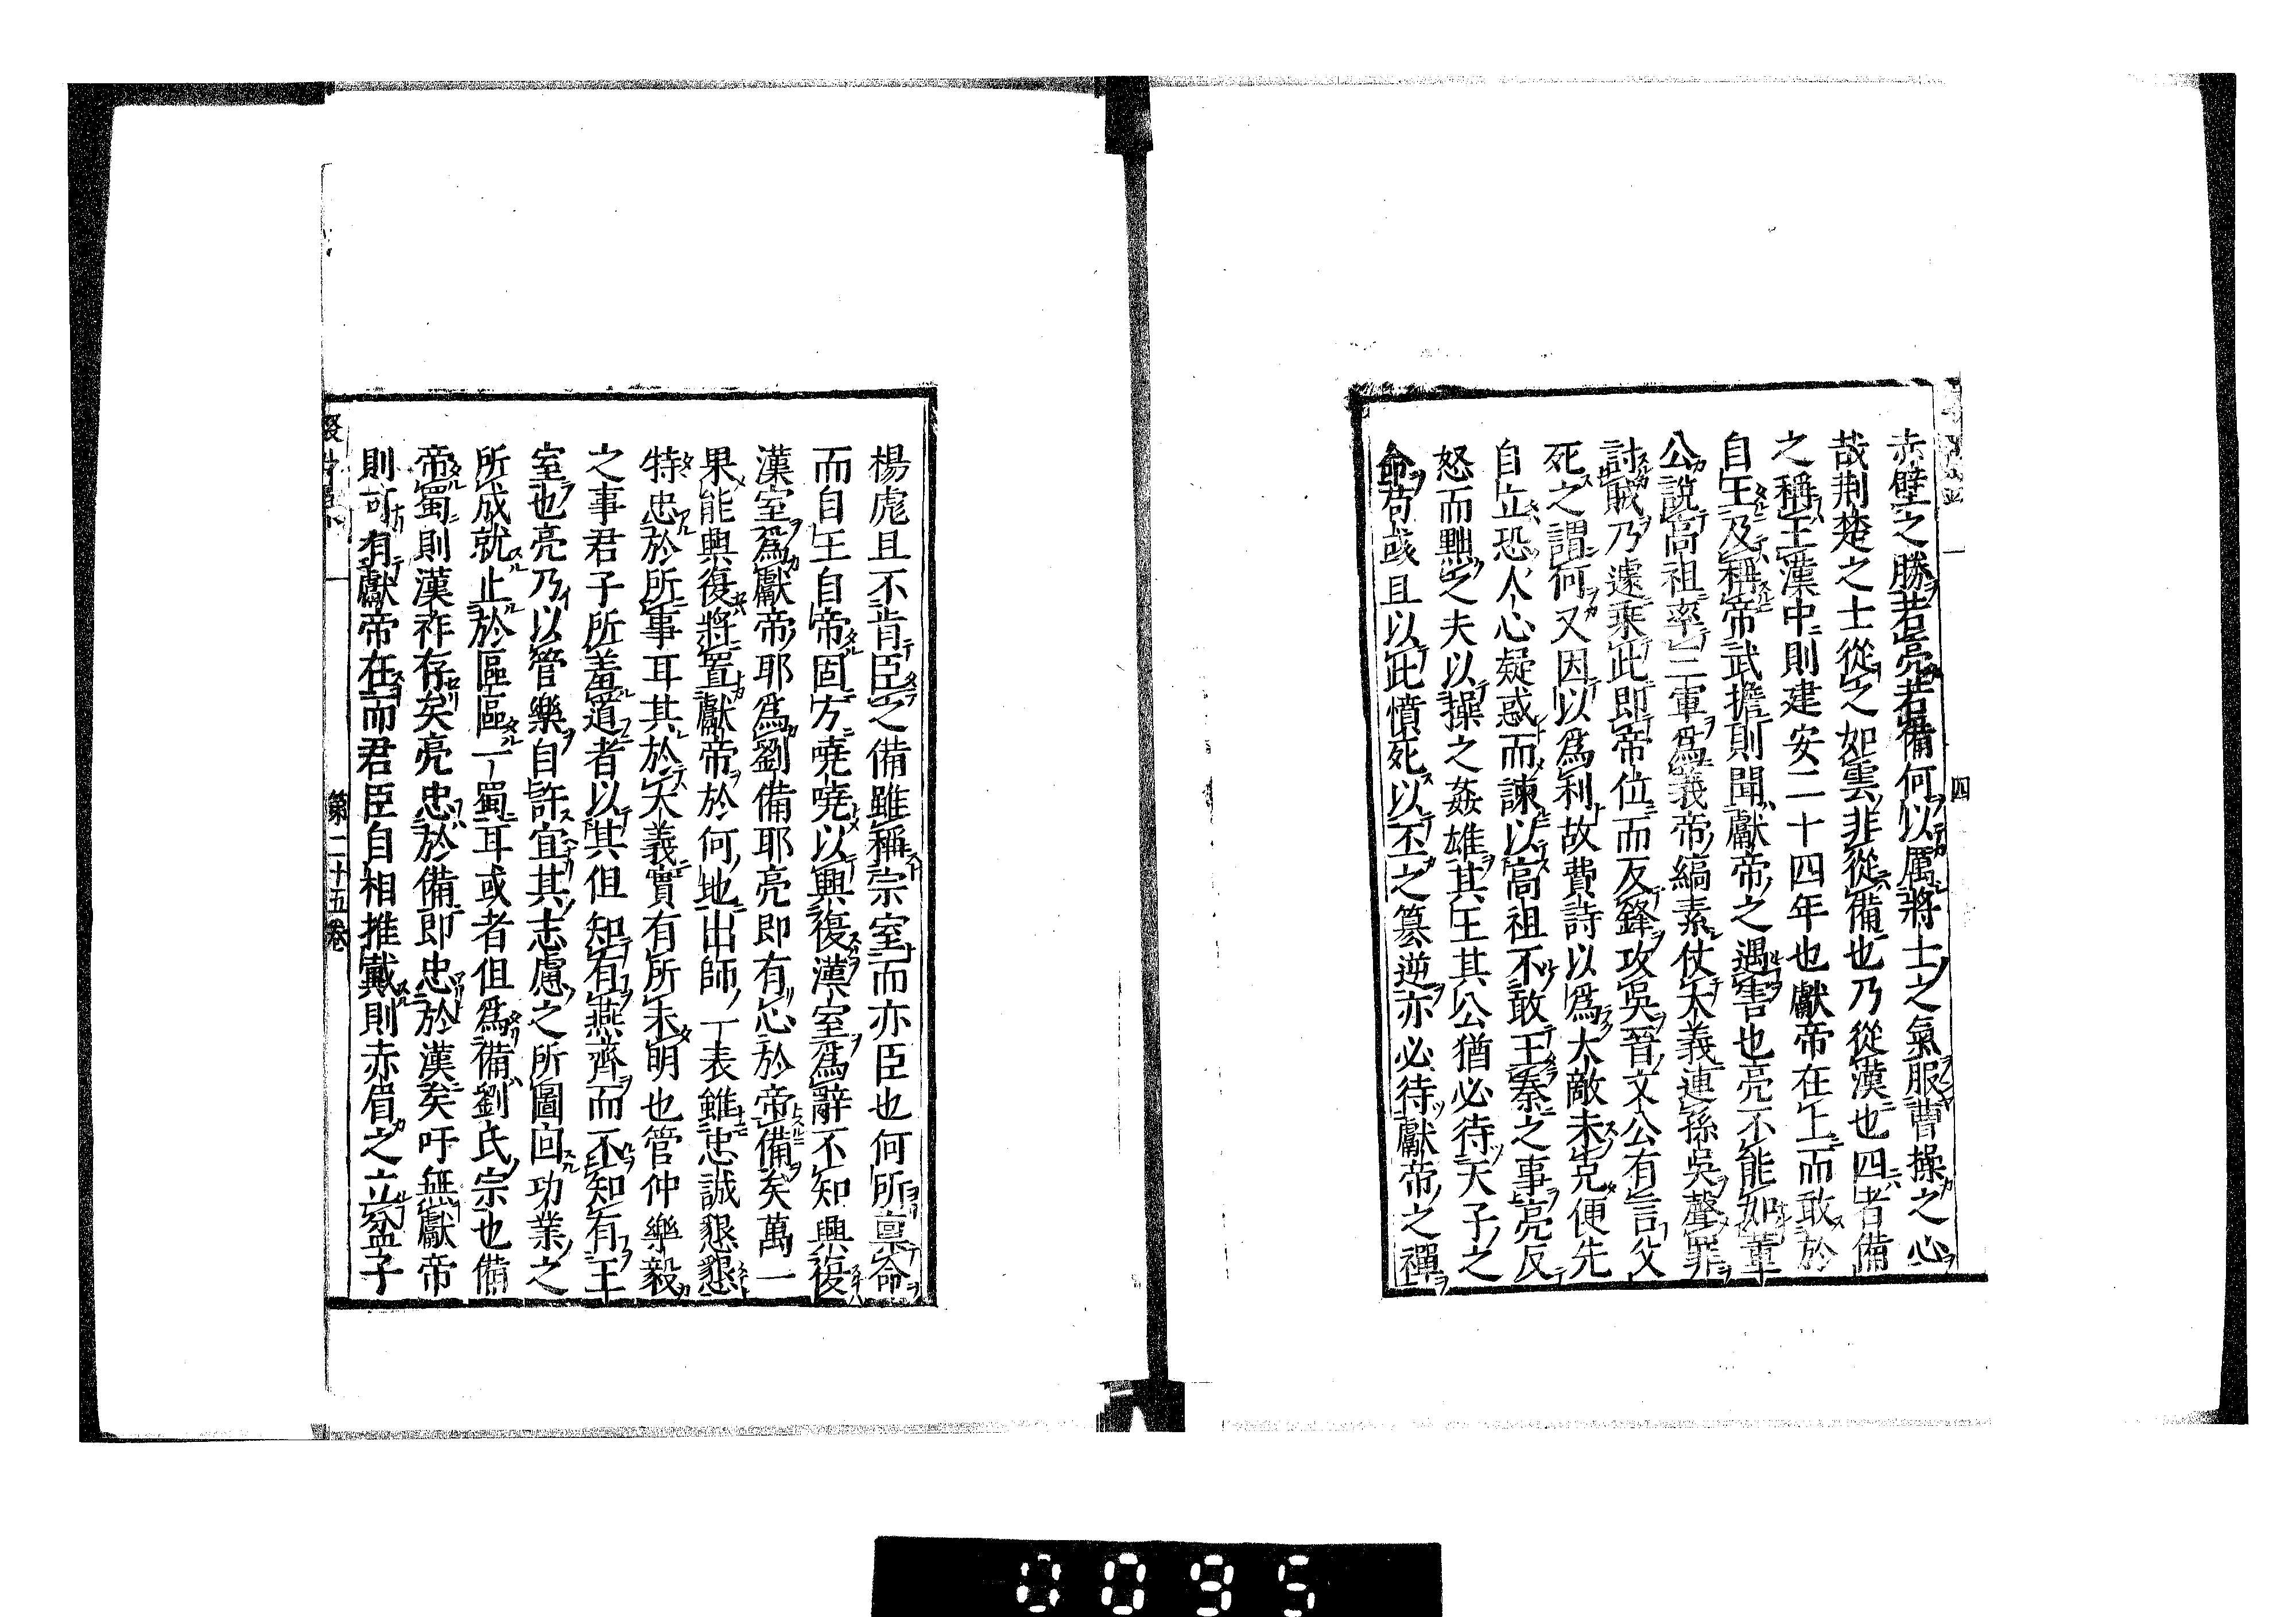 赤壁之勝若亮若備何以厲將士之氣服曹操之心
哉荆楚之士從之如雲非從備也乃從漢也四者備
之稱王漢中則建安二十四年也獻帝在上而敢於
自王及稱帝武擔則聞獻帝之遇害也亮不能如董
公說高祖率三軍爲義帝縞素仗大義連孫吳聲罪
討賊乃遽乘此即帝位而反鋒攻吳晉文公有言父
死之謂何又因以爲利故費詩以爲大敵未克便先
自立恐人心疑惑而諫以高祖不敢王秦之事亮反
怒而黜之夫以操之姦雄其王其公猶必待天子之
命苟彧且以此憤死以丕之篡逆亦必待獻帝之禪
四
楊彪且不肯臣之備雖稱宗室而亦臣也何所禀命
而自王自帝固方嘵嘵以興復漢室爲辭不知興復
漢室爲獻帝耶爲劉備耶亮即有心於帝備矣萬一
果能興復將置獻帝於何地出師一表雖忠誠懇懇
特忠於所事耳其於大義實有所未明也管仲樂毅
之事君子所羞道者以其但知有燕齊而不知有王
室也亮乃以管樂自許宜其志慮之所圖回功業之
所成就止於區區一蜀耳或者但爲備劉氏宗也備
帝蜀則漢祚存矣亮忠於備即忠於漢矣吁無獻帝
則可有獻帝在而君臣自相推戴則赤眉之立盆子
第二十五卷
0095